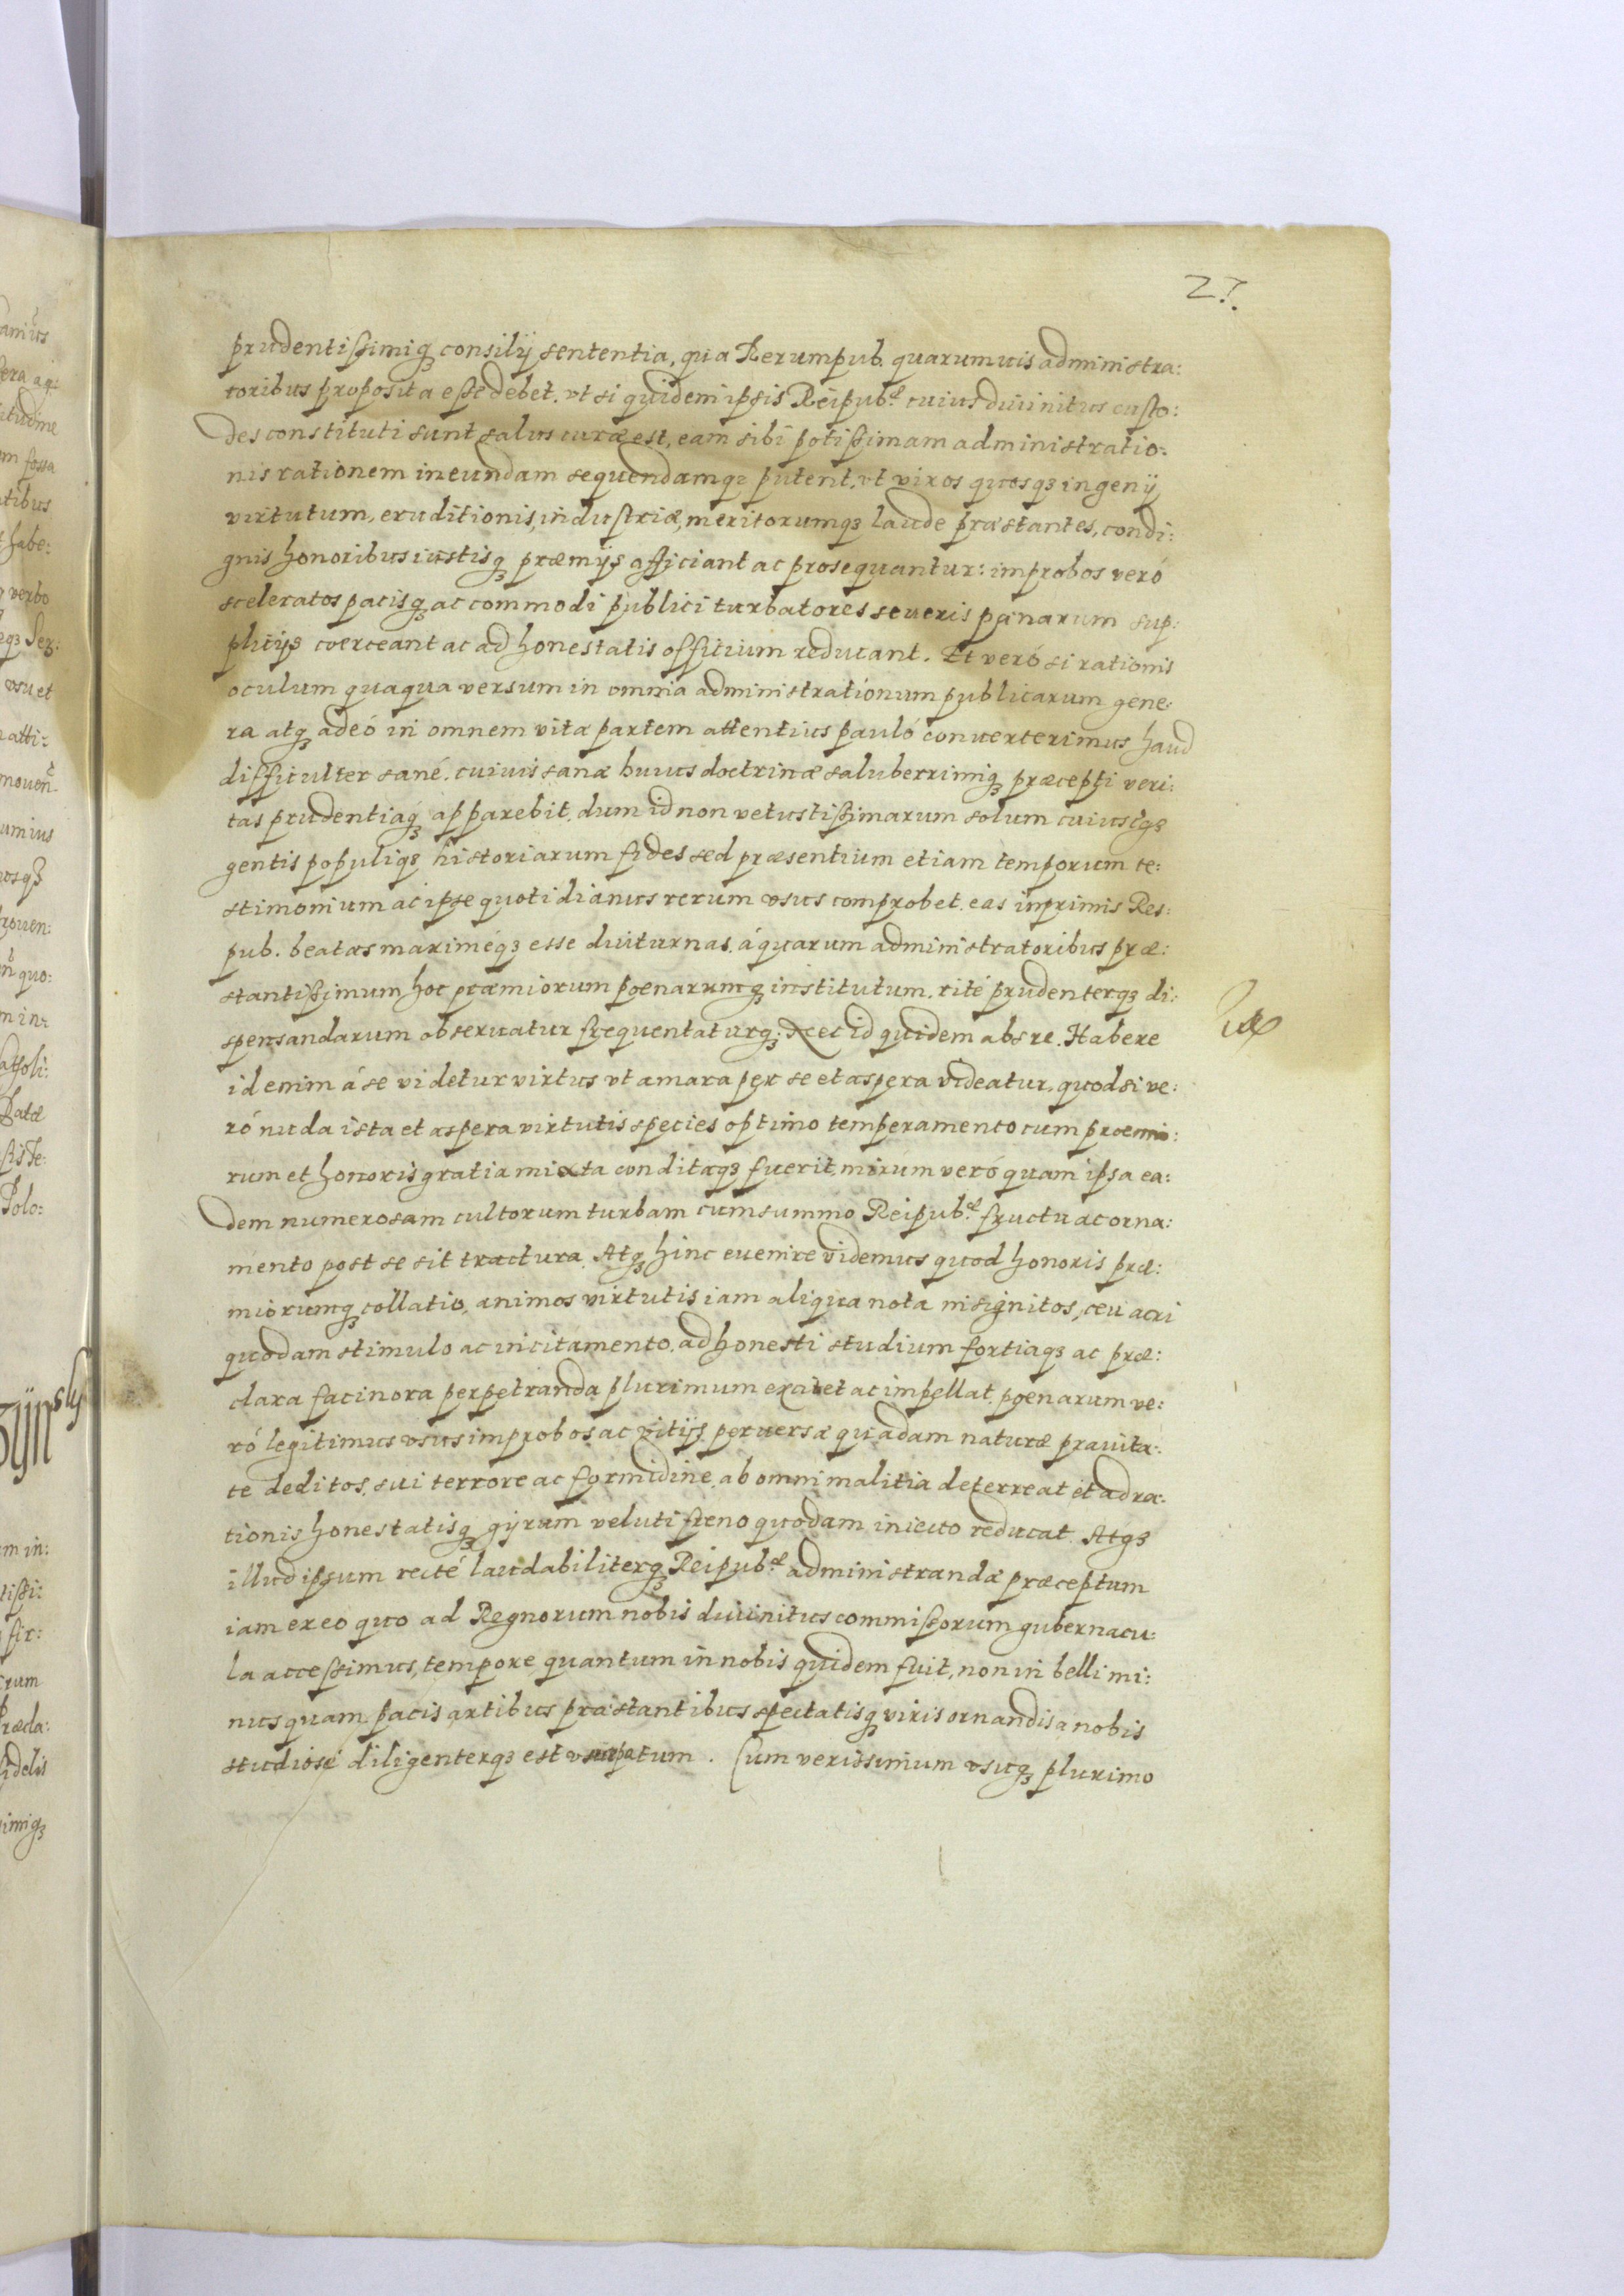 27.
prudentißimiqꝫ consilij sententia, qua Rerumpub. quarumuis administra:
toribus proposita eße debet. vt si quidem ipsis Reipub.ͣᵉ cuius diuinitus custo:
des constituti sunt salus curæ est, eam sibi potißimam administratio:
nis rationem ineundam sequendamqꝫ putent, vt viros quosqꝫ ingenij
virtutum, eruditionis, industriæ, meritorumqꝫ laude præstantes, condi:
gnis honoribus iustisqꝫ præmijs afficiant ac prosequantur: improbos veró
sceleratos pacisqꝫ ac commodi publici turbatores seueris pænarum sup:
plicijs coerceant ac ad honestatis officium reducant. Et veró si rationis
oculum quaqua versum in omnia administrationum publicarum gene:
ra atqꝫ adeó in omnem vitæ partem attentius pauló conuerterimus haud
difficulter sané. cuiuis sanæ huius doctrinæ saluberrimiqꝫ præcepti veri:
tas prudentiaqꝫ apparebit. dum id non vetustißimarum solum cuiuscqꝫ
gentis populiqꝫ historiarum fides sed præsentium etiam temporum te:
stimonium ac ipse quotidianus rerum vsus comprobet. eas inprimis Res:
pub. beatas maximéqꝫ esse diuturnas. á quarum administratoribus præ:
stantißimum hoc præmiorum poenarumqꝫ institutum. rité prudenterqꝫ di:
spensandarum obseruatur frequentaturqꝫ; Nec id quidem abs re. Habere
id enim á se videtur virtus vt amara per se et aspera videatur. quodsi ve:
ró nuda ista et aspera virtutis species optimo temperamento cum præmio:
rum et honoris gratia mixta conditaqꝫ fuerit, mirum veró quam ipsa ea:
dem numerosam cultorum turbam cum summo Reipub.ͣᵉ fructu ac orna:
mento post se sit tractura. Atqꝫ hinc euenire videmus quod honoris præ:
miorumqꝫ collatio, animos virtutis iam aliqua nota insignitos, ceu acri
quodam stimulo ac incitamento, ad honesti studium fortiaqꝫ ac præ:
clara facinora perpetranda plurimum excitet ac impellat. poenarum ve:
ró legitimus vsus improbos ac vitijs peruersæ quadam naturæ prauita:
te deditos, sui terrore ac formidine, ab omni malitia deterreat et ad ra:
tionis honestatisqꝫ gyrum veluti freno quodam iniecto reducat. Atqꝫ
illud ipsum recté laudabiliterqꝫ Reipub.ͣᵉ administrandæ præceptum
iam ex eo quo ad Regnorum nobis diuinitus commißorum gubernacu:
la acceßimus, tempore quantum in nobis quidem fuit, non in belli mi:
nus quam pacis artibus præstantibus spectatisqꝫ viris ornandis a nobis
studiosé diligenterqꝫ est vsurpatum. Cum verissimum vsuqꝫ plurimo